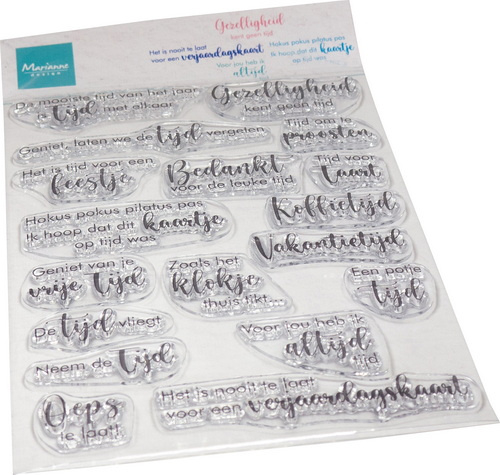 Marianne
DESIGN
Gezelligheid
kent geen tijd
Het is nooit te laat
voor een verjaardagskaart
Hokus pokus pilatus pas
Ik hoop dat dit kaartje
op tijd was
Voor jou heb ik
altijd
De mooiste tijd van het jaar
is tijd met elkaar
Gezelligheid
kent geen tijd
Geniet, laten we de tijd vergeten
Tijd om te
proosten
Het is tijd voor een
feestje
Bedankt
voor de leuke tijd
Tijd voor
taart
Hokus pokus pilatus pas
Ik hoop dat dit kaartje
op tijd was
Koffietijd
Vakantietijd
Geniet van je
vrije tijd
Zoals het
klokje
thuis tikt...
Een potje
tijd
De tijd vliegt
Voor jou heb ik
altijd
tijd
Neem de tijd
Oeps
te laat!
Het is nooit te laat
voor een verjaardagskaart